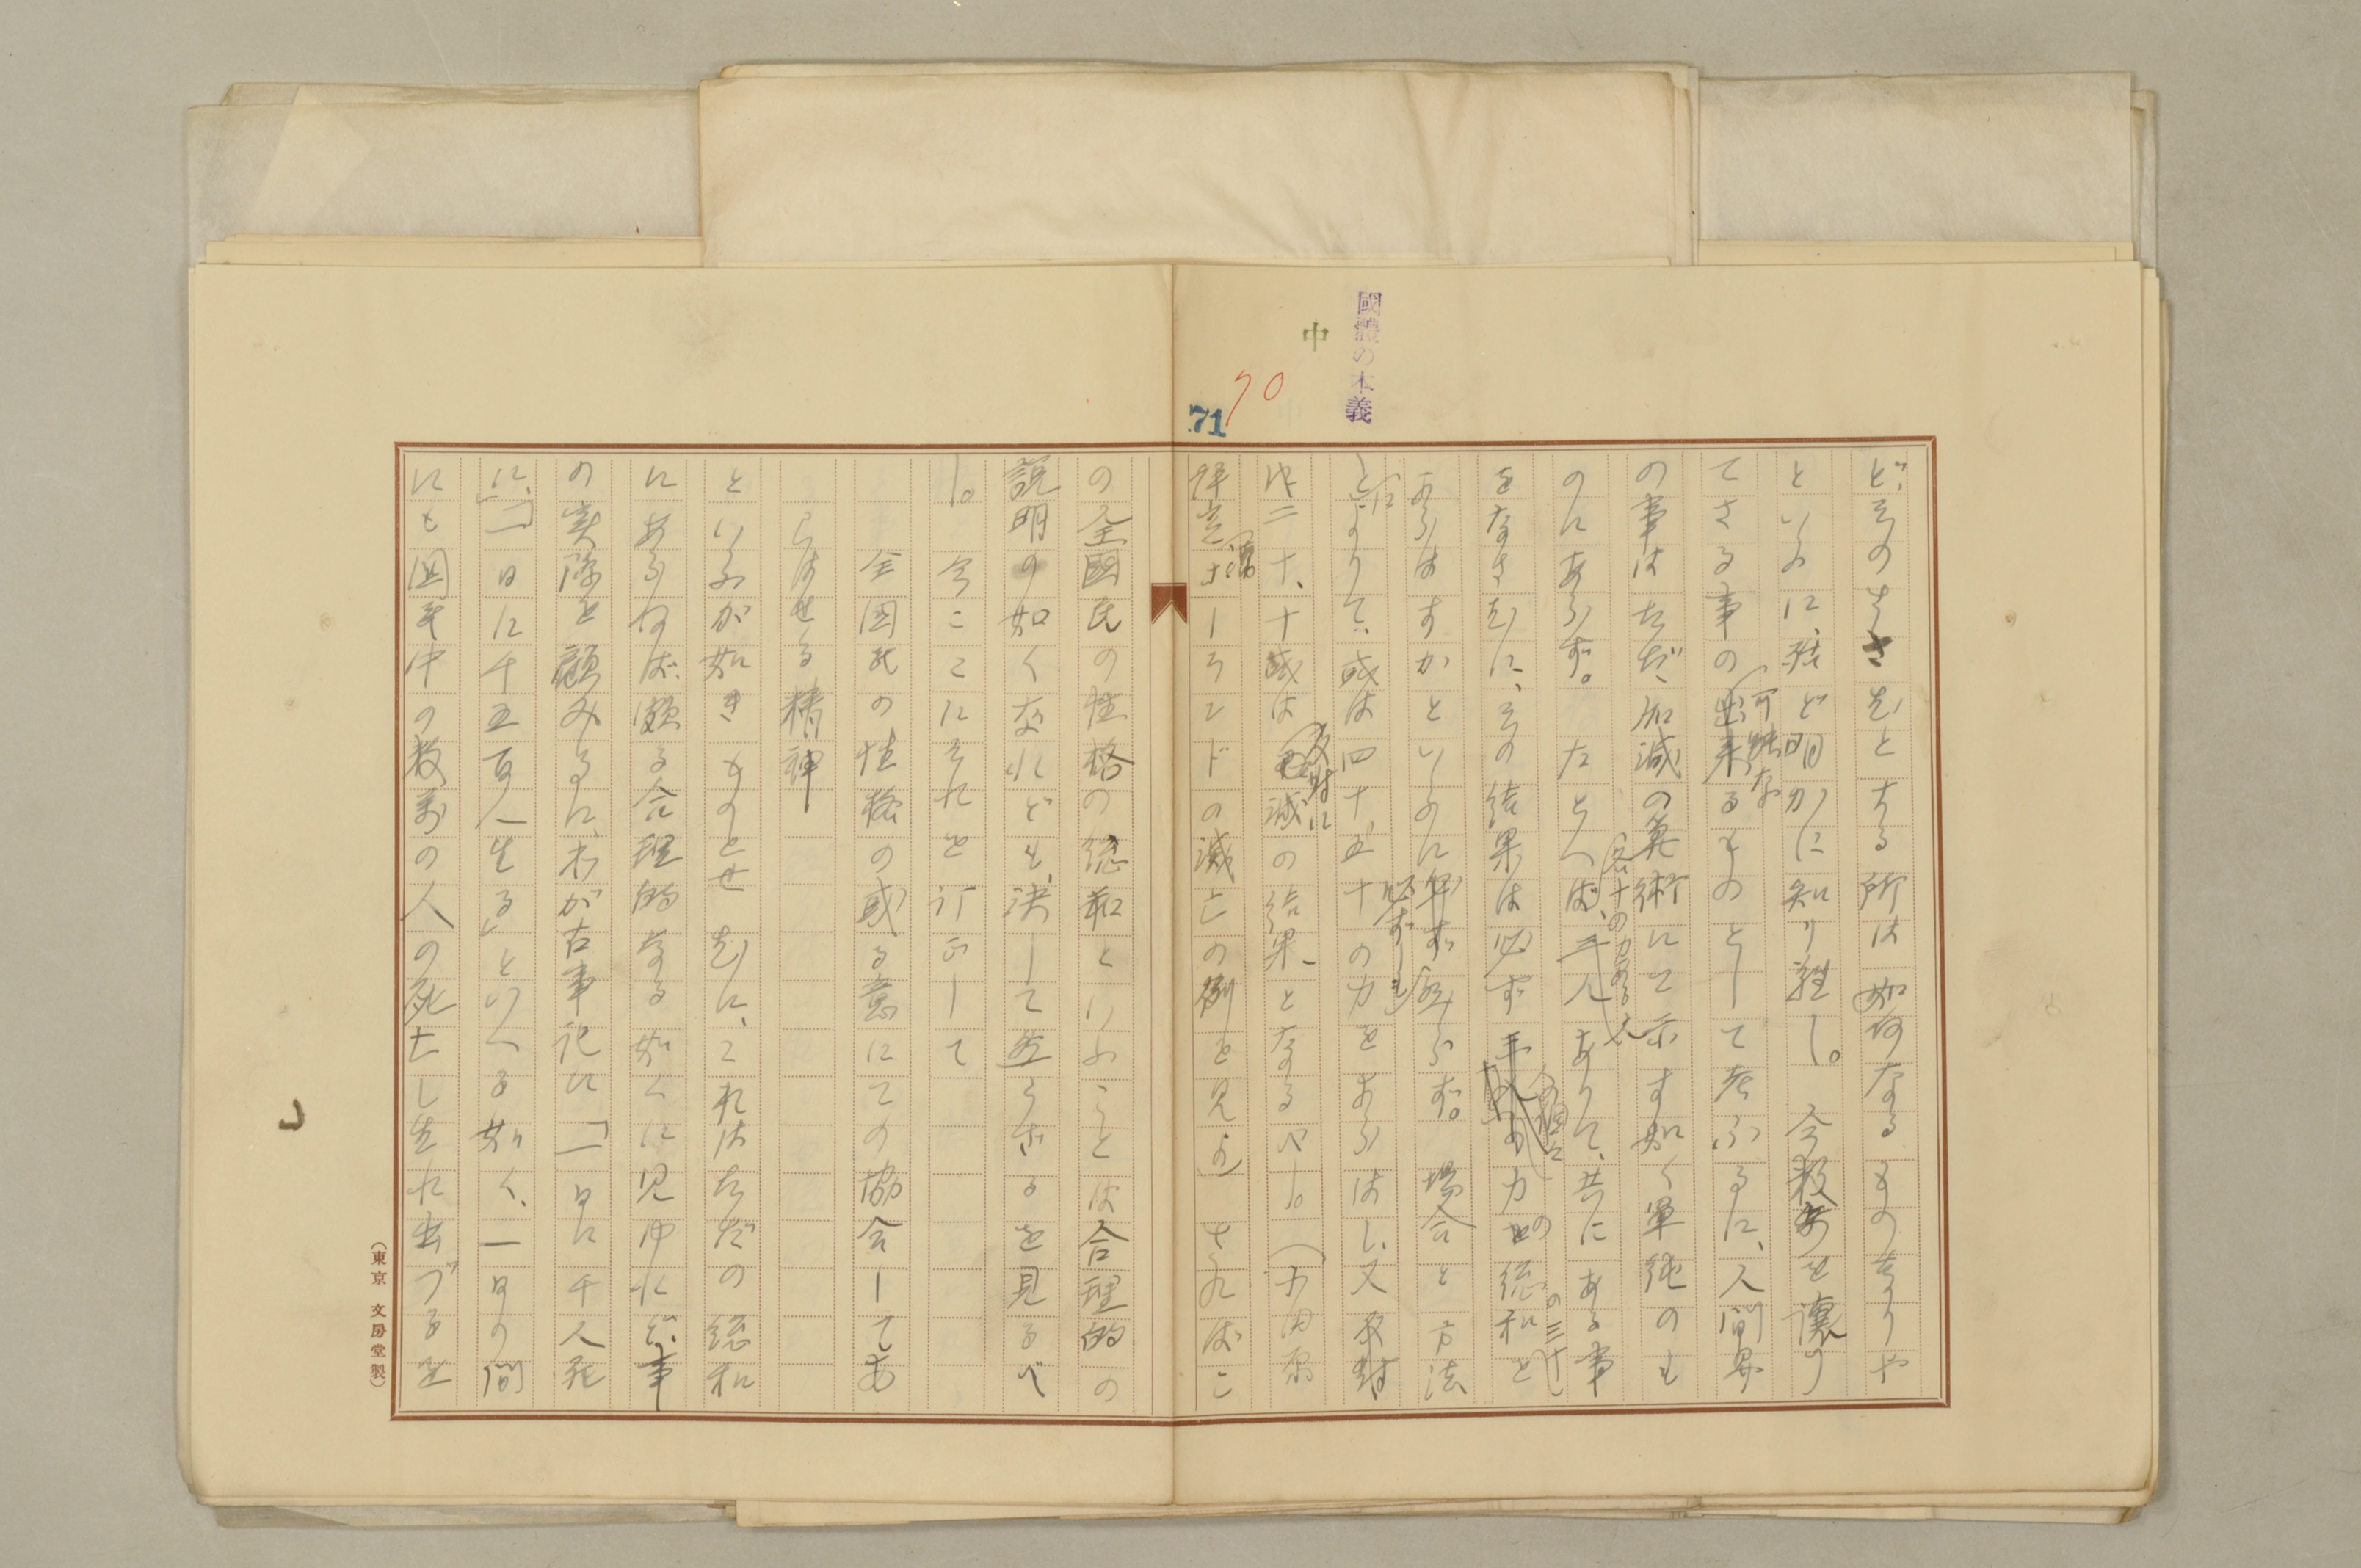 國體の本義
中
70
71
ど、そのさきむとする所は如何なるものなりや
といふに、殆ど明かに知り難し。今数歩を譲り
てさる事の可能なるものとして考ふるに、人間界
の事はただ加減の算術にて示す如く単純のも
のにあらず。たとへば、各十の力ある人三人ありて、共にある事
をなさむに、その結果は必ず各個の力の総和の三十を
あらはすかといふに必ずしも然らず。場合と方法
とによりて、或は四十、五十の力をあらはし、又反対
に二十、十或は反対に減の結果となるべし。
の滅亡の例を見よ さればこ
の全國民の性格の総和といふことは合理的の
説明の如くなれども、決して然らざるを見るべ
し。今ここにそれを訂正して
全国民の性格の或る意にての協合してあ
らはせる精神
といふが如きものとせむに、これはただの総和
にあらねば、頗る合理的なる如くに見ゆれど、事
の実際を顧みるに、わが古事記に「一日に千人死
に、一日に千五百人生る」といへる如く、一日の間
にも国民中の数万の人の死亡し生れ出づるを
(東京 文房堂製)